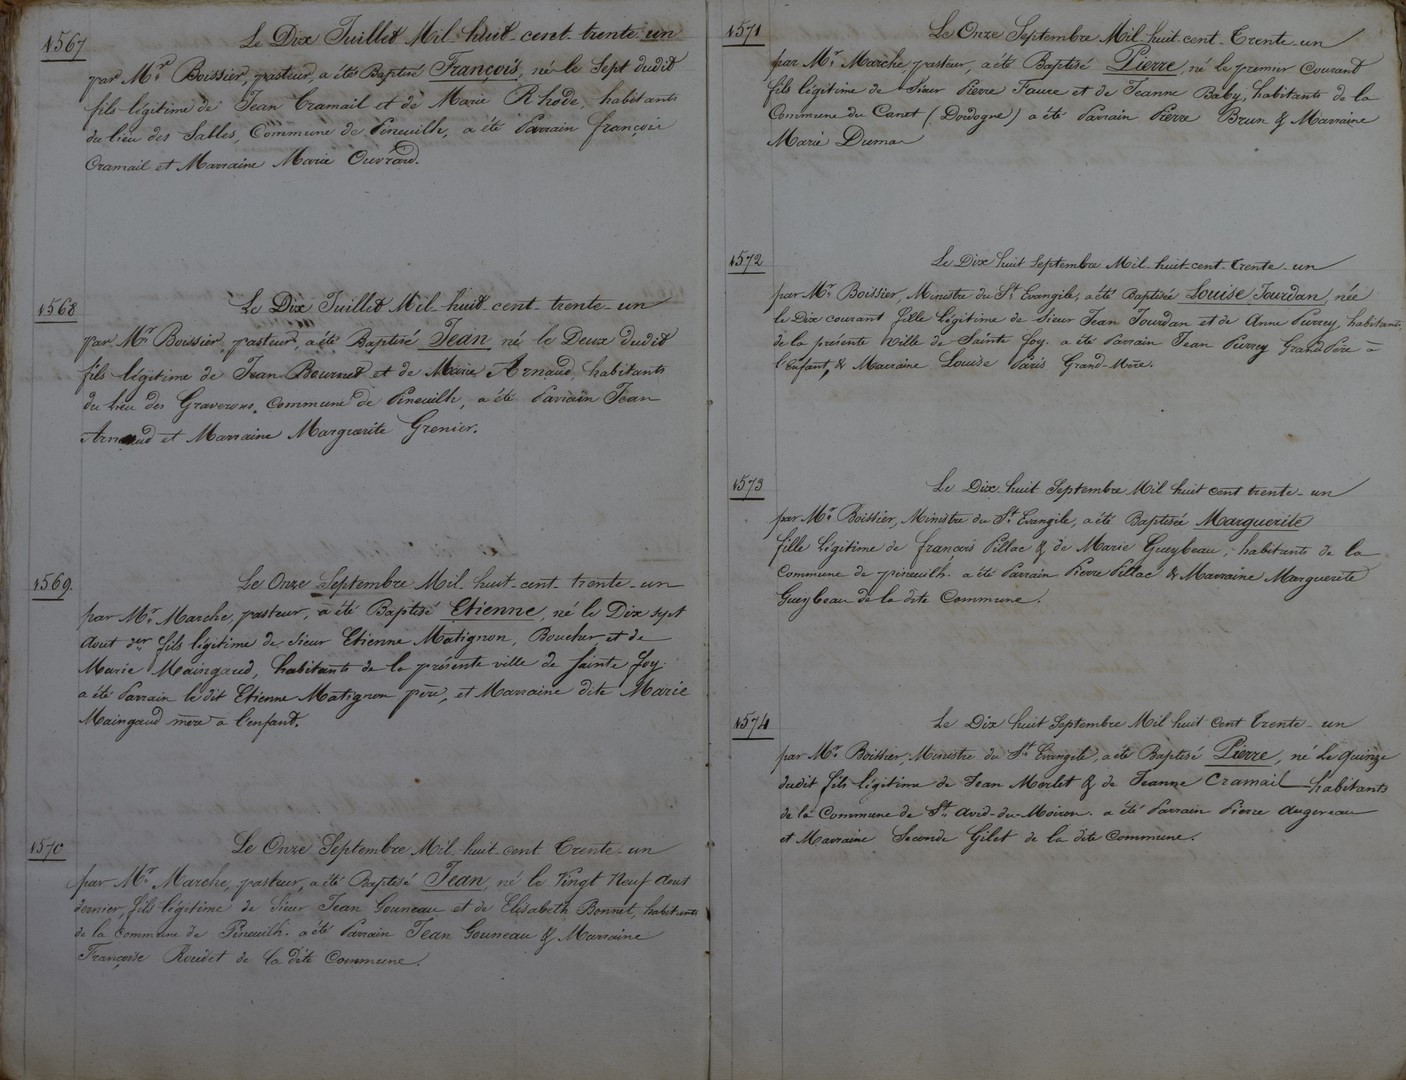 1567
Le Dix Juillet Mil-huit-cent-trente-un
par Mr. Boissier, pasteur, a été Baptisé François, né le Sept dudit
fils légitime de Jean Cramail et de Marie Rhode, habitants
du lieu des Salles, Commune de Pineuilh, a été Parrain françois
Cramail et Marraine Marie Ouvrard.
1568
Le Dix Juillet Mil-huit-cent-trente-un
par Mr. Boissier, pasteur, a été Baptisé Jean, né le Deux dudit
fils légitime de Jean Bournet et de Marie Arnaud, habitants
du lieu des Graverons, Commune de Pineuilh, a été Parrain Jean
Arnaud et Marraine Marguerite Grenier.
1569.
Le Onze Septembre Mil-huit-cent-trente-un
par Mr. Marche, pasteur, a été Baptisé Etienne, né le Dix sept
Aout der fils légitime de sieur Etienne Matignon, Boucher, et de
Marie Maingaud, habitants de la présente ville de Sainte foy.
a été Parrain le dit Etienne Matignon père, et Marraine dite Marie
Maingaud mère à l'enfant.
1570
Le Onze Septembre Mil-huit-cent Trente-un
par Mr. Marche, pasteur, a été Baptisé Jean, né le Vingt Neuf Aout
dernier, fils légitime de Sieur Jean Gouneau et de Elisabeth Bonnet, habitants
de la Commune de Pineuilh. a été Parrain Jean Gouneau & Marraine
Françoise Roudet de la dite Commune.
1571
Le Onze Septembre Mil-huit-cent-Trente-un
par Mr. Marche pasteur, a été Baptisé Pierre, né le premier Courant
fils légitime de Sieur Pierre Faure et de Jeanne Baby, habitants de la
Commune du Canet (Dordogne) a été Parrain Pierre Brun & Marraine
Marie Dumas
1572
Le Dix huit Septembre Mil-huit-cent-Trente-un
par Mr. Boissier, Ministre du St. Evangile, a été Baptisée Louise Jourdan, née
le Dix courant fille légitime de sieur Jean Jourdan et de Anne Pierrey, habitants
de la présente Ville de Sainte foy. a été Parrain Jean Pierrey Grand Père à
l'Enfant, & Marraine Louise Paris Grand-Mère.
1573
Le Dix huit Septembre Mil huit cent trente-un
par Mr. Boissier, Ministre du St. Evangile, a été Baptisée Marguerite
fille légitime de françois Pillac & de Marie Gueybeau, habitants de la
Commune de pineuilh. a été Parrain Pierre Pillac & Marraine Marguerite
Gueybeau de la dite Commune.
1574
Le Dix huit Septembre Mil huit Cent Trente-un
par Mr. Boissier, Ministre du St. Evangile, a été Baptisé Pierre, né le quinze
dudit fils légitime de Jean Morlet & de Jeanne Cramail habitants
de la Commune de St. Avid-du-Moiron. a été Parrain Pierre Augereau
et Marraine Seconde Gilet de la dite Commune.